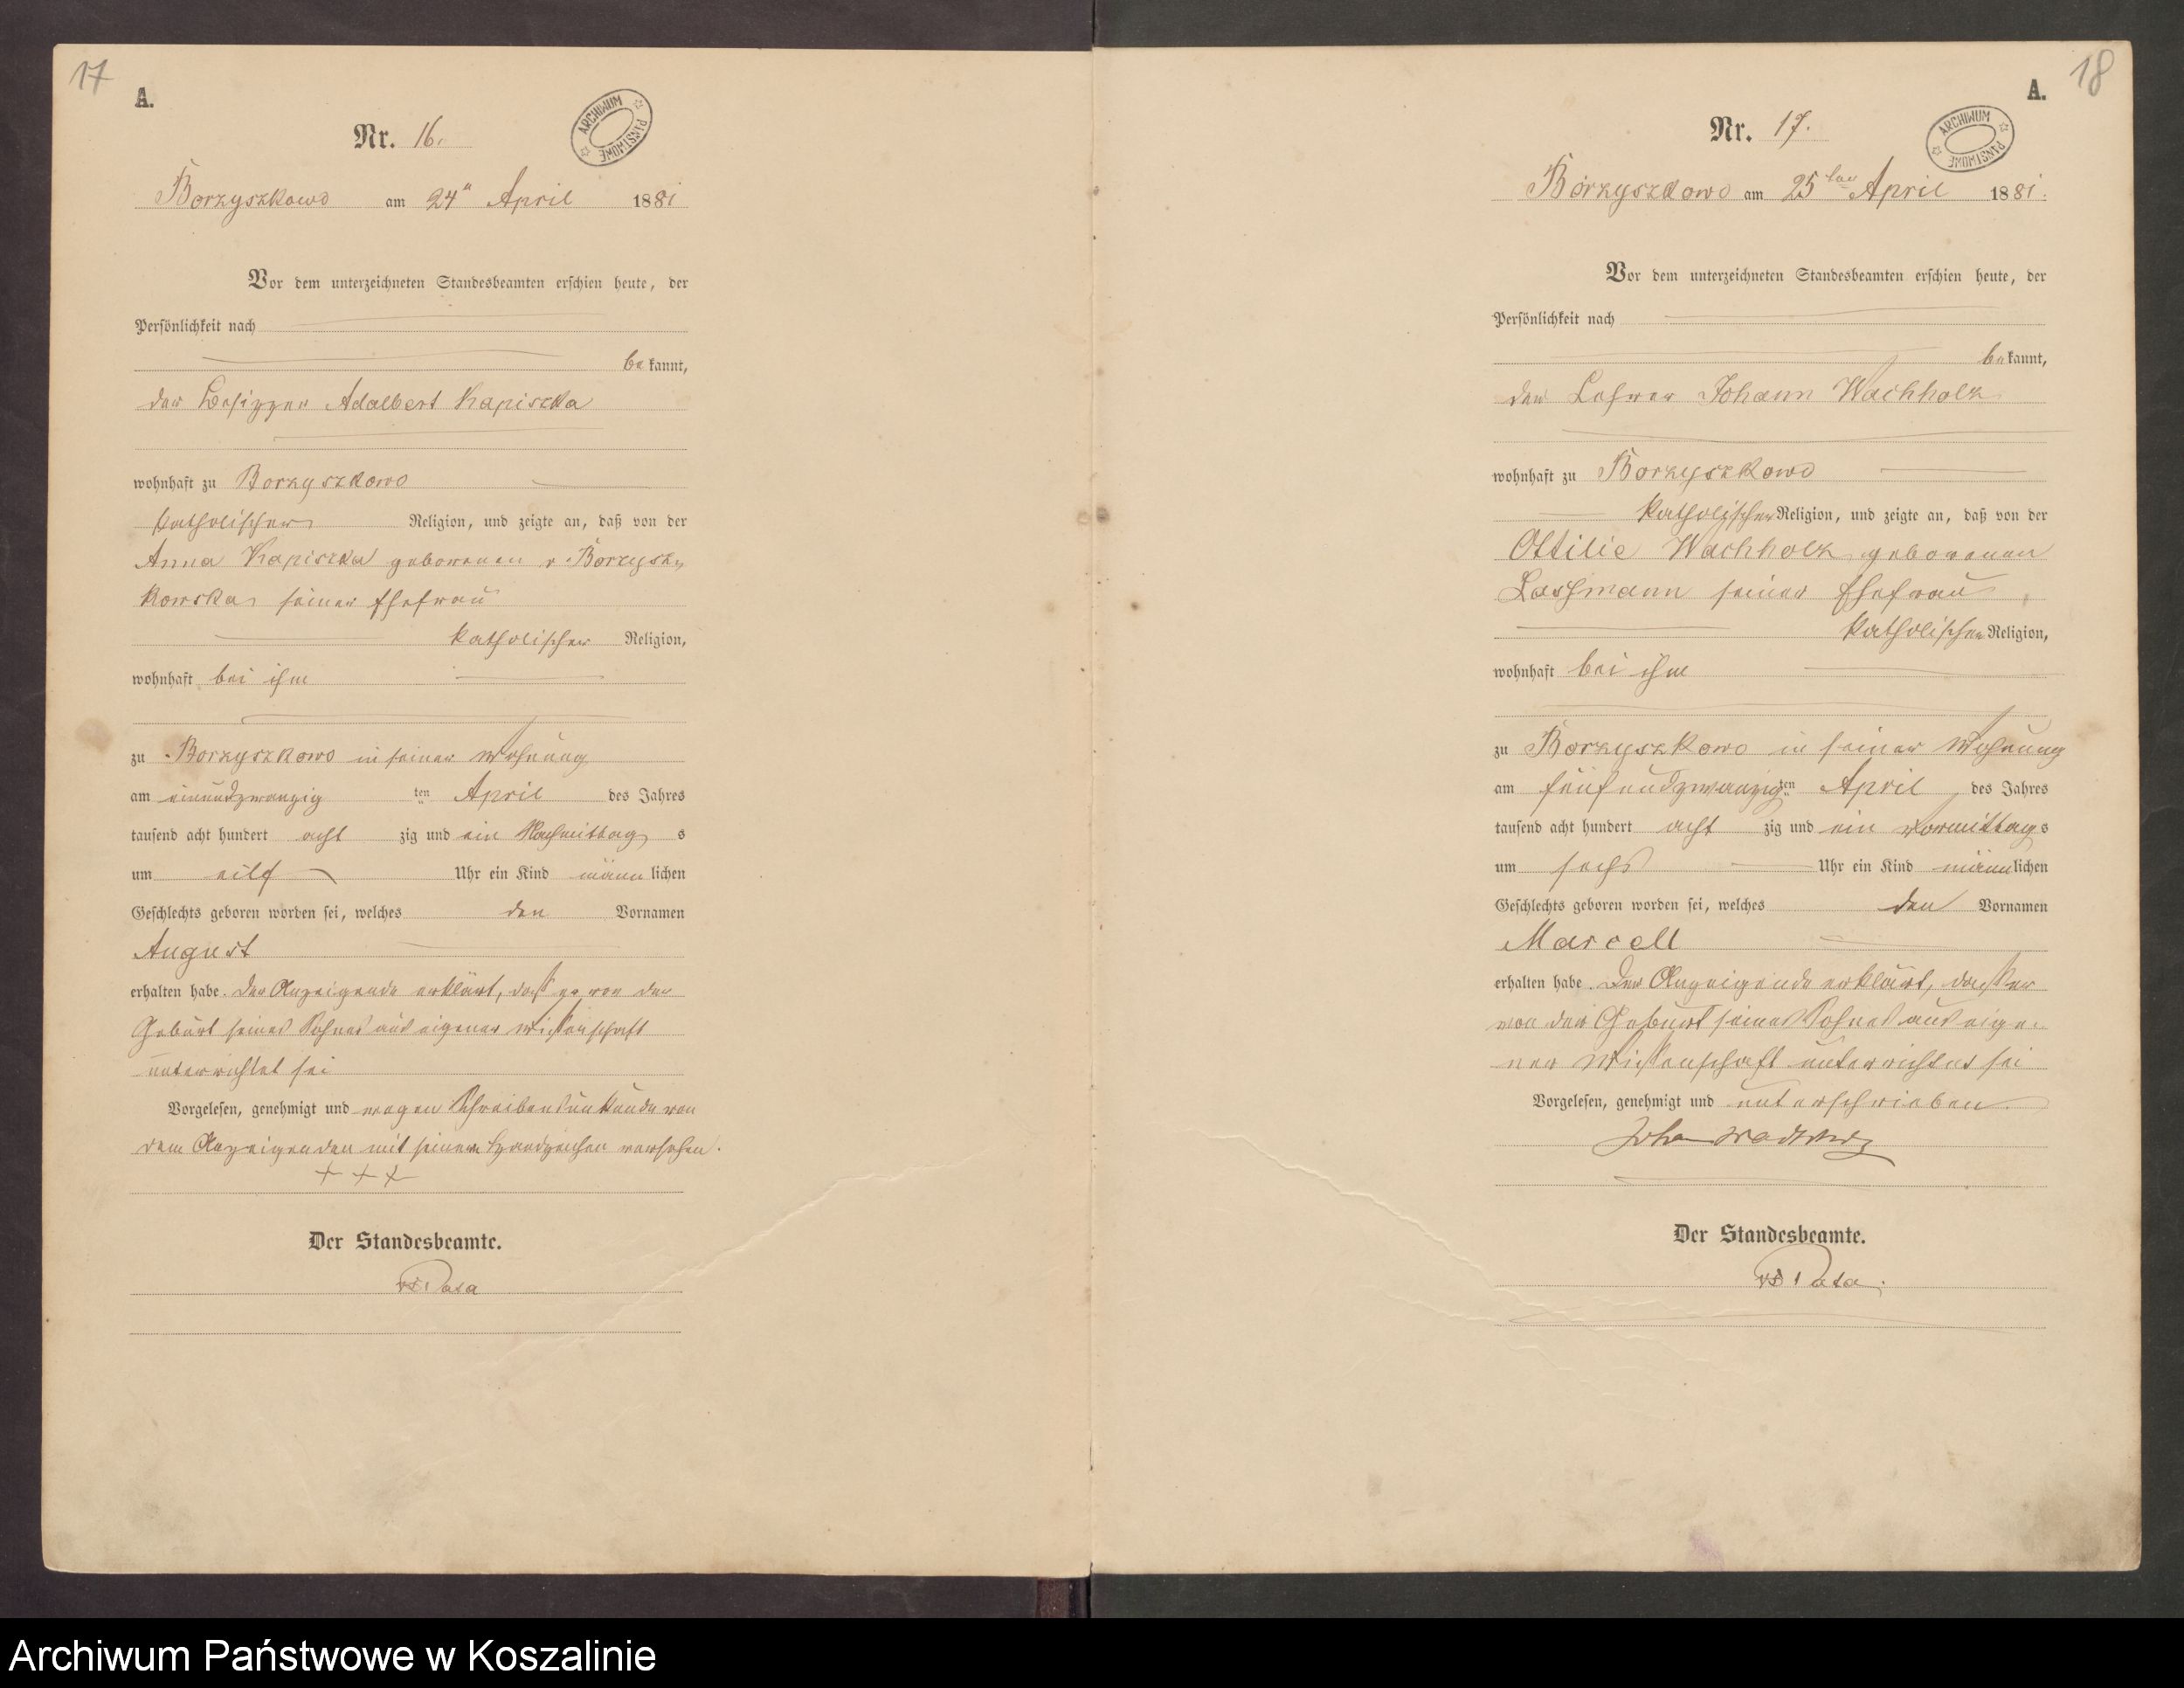 17
A.
ARCHIWUM PAŃSTWOWE
Nr. 16.
Borzyszkowo am 24ten April 1881
Vor dem unterzeichneten Standesbeamten erschien heute, der
Persönlichkeit nach
bekannt,
der Besitzer Adalbert Kapiszka
wohnhaft zu Borzyszkowo
katholischer Religion, und zeigte an, daß von der
Anna Kapiszka geborenen v. Borzysz-
kowska seiner Ehefrau
katholischer Religion,
wohnhaft bei ihm
zu Borzyszkowo in seiner Wohnung
am einundzwanzig ten April des Jahres
tausend acht hundert acht zig und ein Nachmittag s
um eilf Uhr ein Kind männlichen
Geschlechts geboren worden sei, welches den Vornamen
August
erhalten habe. Der Anzeigende erklärt, daß er von der
Geburt seines Sohnes aus eigener Wissenschaft
unterrichtet sei
Vorgelesen, genehmigt und wegen Schreibensunkunde von
dem Anzeigenden mit seinem Handzeichen versehen.
+ + +
Der Standesbeamte.
18
A.
ARCHIWUM PAŃSTWOWE
Nr. 17.
Borzyszkowo am 25ten April 1881.
Vor dem unterzeichneten Standesbeamten erschien heute, der
Persönlichkeit nach
bekannt,
der Lehrer Johann Wachholz
wohnhaft zu Borzyszkowo
katholischer Religion, und zeigte an, daß von der
Ottilie Wachholz geborenen
seiner Ehefrau
katholischer Religion,
wohnhaft bei ihm
zu Borzyszkowo in seiner Wohnung
am fünfundzwanzigten April des Jahres
tausend acht hundert acht zig und ein Vormittags
um sechs Uhr ein Kind männlichen
Geschlechts geboren worden sei, welches den Vornamen
Marcell
erhalten habe. Der Anzeigende erklärt, daß er
von der Geburt seines Sohnes aus eige-
ner Wissenschaft unterrichtet sei
Vorgelesen, genehmigt und unterschrieben.
Johann Wachholz
Der Standesbeamte.
Archiwum Państwowe w Koszalinie